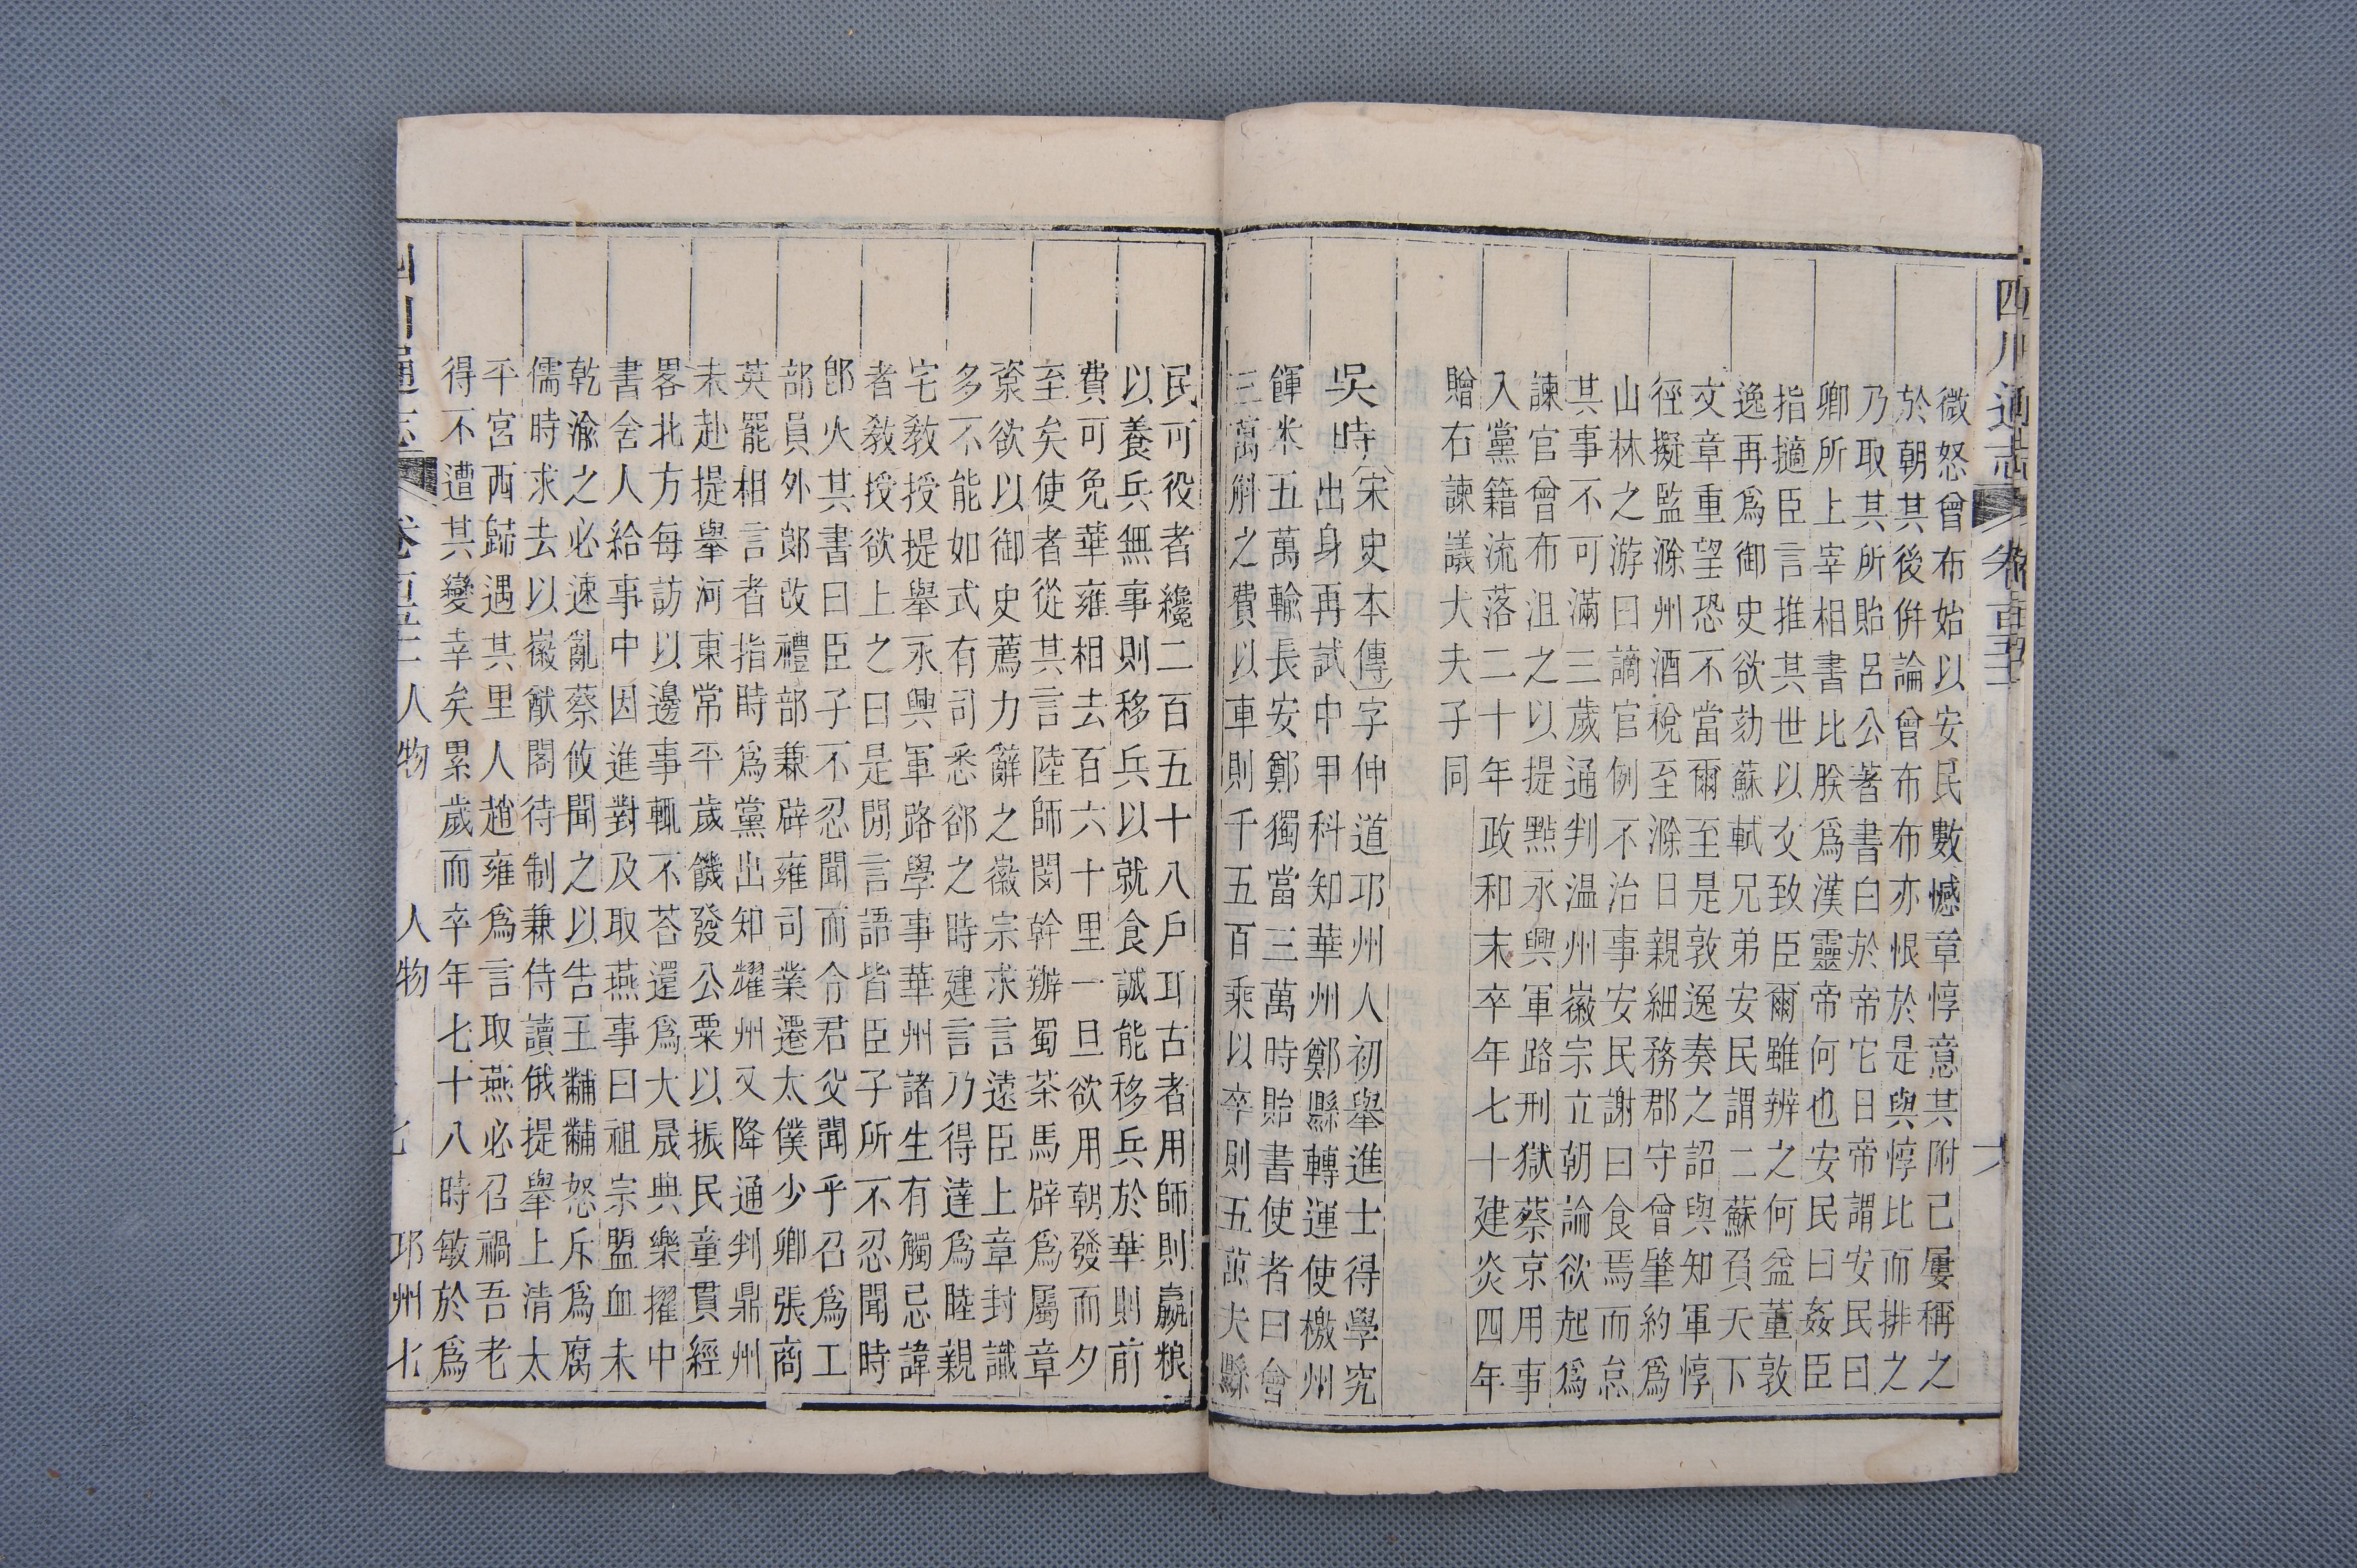 四川通志
微怒曾布始以安民數憾章惇意其附己屢稱之
於朝其後併論曾布布亦恨於是與惇比而排之
乃取其所貽呂公著書白於帝它日帝謂安民曰
卿所上宰相書比朕爲漢靈帝何也安民曰姦臣
指擿臣言推其世以文致臣爾雖辨之何益董敦
逸再爲御史欲劾蘇軾兄弟安民謂二蘇負天下
文章重望恐不當爾至是敦逸奏之詔與知軍惇
徑擬監滁州酒稅至滁日親細務郡守曾肇約爲
山林之游曰謫官例不治事安民謝曰食焉而怠
其事不可滿三歲通判温州徽宗立朝論欲起爲
諫官曾布沮之以提點永興軍路刑獄蔡京用事
入黨籍流落二十年政和末卒年七十建炎四年
贈右諫議大夫子同
吳時（宋史本傳）字仲道邛州人初舉進士得學究
出身再試中甲科知華州鄭縣轉運使檄州
餫米五萬輸長安鄭獨當三萬時貽書使者曰會
三萬斛之費以車則千五百乘以卒則五萬夫縣
民可役者纔二百五十八戶耳古者用師則贏粮
以養兵無事則移兵以就食誠能移兵於華則前
費可免華雍相去百六十里一旦欲用朝發而夕
至矣使者從其言陸師閔幹辦蜀茶馬辟爲屬章
楶欲以御史薦力辭之徽宗求言遠臣上章封識
多不能如式有司悉郤之時建言乃得達爲睦親
宅教授提舉永興軍路學事華州諸生有觸忌諱
者教授欲上之曰是閒言語皆臣子所不忍聞時
卽火其書曰臣子不忍聞而令君父聞乎召爲工
部員外郎改禮部兼辟雍司業遷太僕少卿張商
英罷相言者指時爲黨出知耀州又降通判鼎州
未赴提舉河東常平歲饑發公粟以振民童貫經
畧北方每訪以邊事輒不荅還爲大晟典樂擢中
書舍人給事中因進對及取燕事曰祖宗盟血未
乾渝之必速亂蔡攸聞之以告王黼黼怒斥爲腐
儒時求去以徽猷閣待制兼侍讀俄提舉上清太
平宮西歸遇其里人趙雍爲言取燕必召禍吾老
得不遭其變幸矣累歲而卒年七十八時敏於爲
人物 人物 邛州